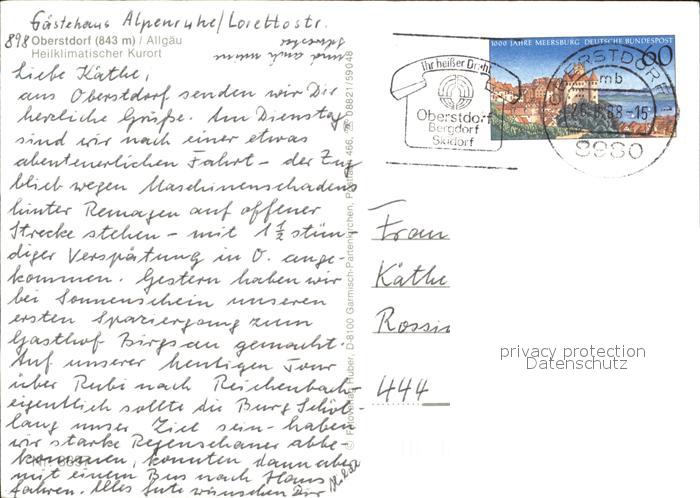 Gästehaus Alpenruhe/Lorettostr.
898 Oberstdorf (843 m) / Allgäu
Heilklimatischer Kurort
Liebe Käthe,
aus Oberstdorf senden wir Dir
herzliche Grüße. Am Dienstag
sind wir nach einer etwas
abenteuerlichen Fahrt - der Zug
blieb wegen Maschinenschadens
hinter Remagen auf offener
Strecke stehen - mit 1 1/2 stün-
diger Verspätung in O. ange-
kommen. Gestern haben wir
bei Sonnenschein unseren
ersten Spaziergang zum
Gasthof Birgsau gemacht.
Auf unserer heutigen Tour
über Rubi nach Reichenbach
eigentlich sollte die Burg Schöl-
lang unser Ziel sein - haben
wir starke Regenschauer abbe-
kommen, konnten dann aber
mit einem Bus nach Haus
fahren. Alles Gute wünschen Dir
Huber, D-8100 Garmisch-Partenkirchen, 466, ☎ 08821/59048
1000 JAHRE MEERSBURG DEUTSCHE BUNDESPOST
60
Ihr heißer Draht
Oberstdorf
Bergdorf
Skidorf
OBERSTDORF 1
mb
-15
8980
Frau
Käthe
Rossi
444
privacy protection
Datenschutz